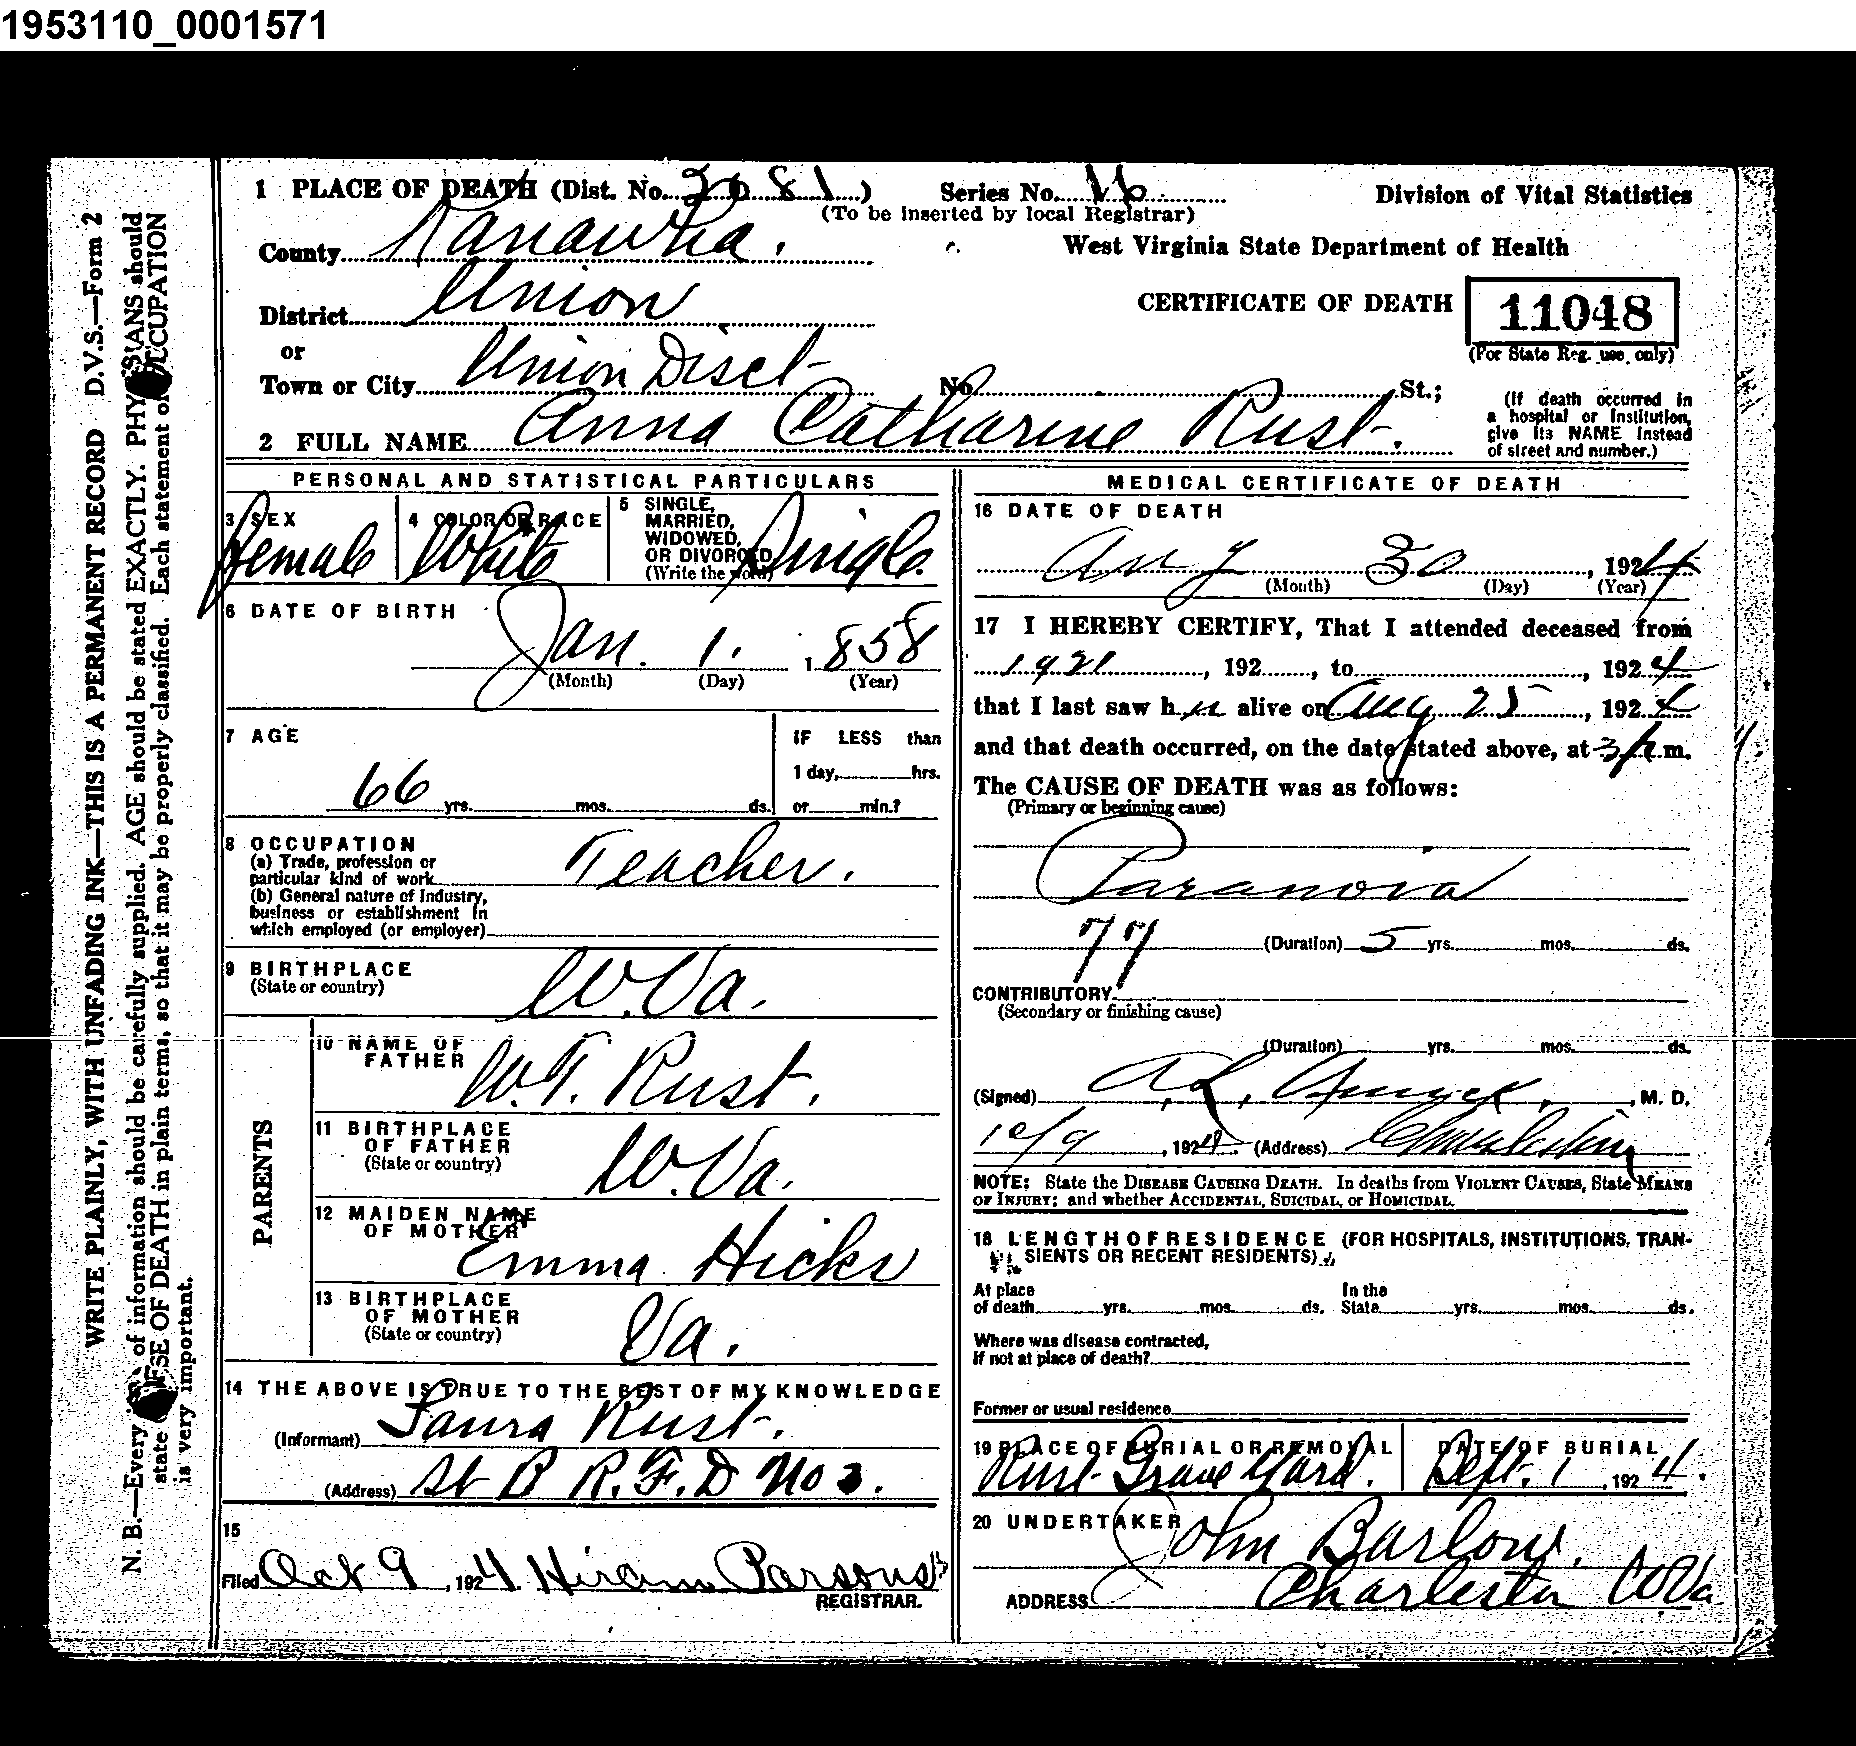 1953110_0001571
1 PLACE OF DEATH (Dist. No. 2081) Series No. 16 Division of Vital Statistics
(To be inserted by local Registrar)
County Kanawha. West Virginia State Department of Health
District Union CERTIFICATE OF DEATH 11048
or (For State Reg. use only)
Town or City Union Disct No. St.;
2 FULL NAME Anna Catharine Rust.
(If death occurred in
a hospital or institution,
give its NAME instead
of street and number.)
PERSONAL AND STATISTICAL PARTICULARS
3 SEX Female
4 COLOR OR RACE White
5 SINGLE,
MARRIED,
WIDOWED,
OR DIVORCED
(Write the word) Single.
6 DATE OF BIRTH
Jan. 1. 1858
(Month) (Day) (Year)
7 AGE
66 yrs. mos. ds.
IF LESS than
1 day, hrs.
or min.?
8 OCCUPATION
(a) Trade, profession or
particular kind of work Teacher.
(b) General nature of Industry,
business or establishment in
which employed (or employer)
9 BIRTHPLACE
(State or country) W.Va.
PARENTS
10 NAME OF
FATHER W.T. Rust.
11 BIRTHPLACE
OF FATHER
(State or country) W.Va.
12 MAIDEN NAME
OF MOTHER Emma Hicks
13 BIRTHPLACE
OF MOTHER
(State or country) Va.
14 THE ABOVE IS TRUE TO THE BEST OF MY KNOWLEDGE
(Informant) Laura Rust.
(Address) St B R.F.D No 3.
15
Filed Oct 9, 1924. Hiram Parsons
REGISTRAR.
MEDICAL CERTIFICATE OF DEATH
16 DATE OF DEATH
Aug 30, 1924
(Month) (Day) (Year)
17 I HEREBY CERTIFY, That I attended deceased from
1921, 192, to, 1924
that I last saw her alive on Aug 25, 1924
and that death occurred, on the date stated above, at 3 P.m.
The CAUSE OF DEATH was as follows:
(Primary or beginning cause)
Paranoia
77 (Duration) 5 yrs. mos. ds.
CONTRIBUTORY
(Secondary or finishing cause)
(Duration) yrs. mos. ds.
(Signed) A.L. Amick, M. D.
10/9, 1924. (Address) Charleston
NOTE: State the DISEASE CAUSING DEATH. In deaths from VIOLENT CAUSES, State MEANS
OF INJURY; and whether ACCIDENTAL, SUICIDAL, or HOMICIDAL.
18 LENGTH OF RESIDENCE (FOR HOSPITALS, INSTITUTIONS, TRAN-
SIENTS OR RECENT RESIDENTS)
At place In the
of death yrs. mos. ds. State yrs. mos. ds.
Where was disease contracted,
if not at place of death?
Former or usual residence
19 PLACE OF BURIAL OR REMOVAL DATE OF BURIAL
Rust Grave Yard. Sept. 1, 1924.
20 UNDERTAKER John Barlow.
ADDRESS Charleston W Va
WRITE PLAINLY, WITH UNFADING INK—THIS IS A PERMANENT RECORD D.V.S.—Form 2
N. B.—Every of information should be carefully supplied. AGE should be stated EXACTLY. PHYSICIANS should
state CAUSE OF DEATH in plain terms, so that it may be properly classified. Each statement of OCCUPATION
is very important.